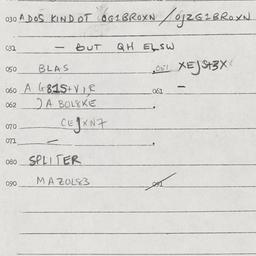 030 ADOS KINDOT OG1BROXN / OJZG1BROXN
031 — BUT QH ELSW
050 BLAS 051 XEJS+3X
060 A G81S+VIR 061 —
062 JA BOLEKE
070 CEJXN7
071 —
080 SPLITER
090 MAZOL83 091